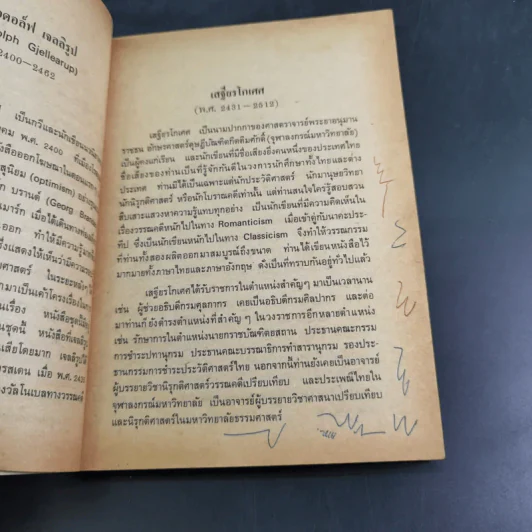 อดอล์ฟ เจลลิรูป
olph Gjellerup)
2400—2462
เป็นกวีและนักเขียน
คม พ.ศ. 2400
สุนิยม (optimism)
บรานด์ (Georg
มาร์ก เมื่อได้เดินทาง
ออก ทำให้มีความรู้
ซึ่งแสดงให้เห็นว่ามีความ
ศาสตร์ ในระยะหลัง
มาเป็นเค้าโครงเรื่อง
นเรื่อง หนังสือชุดนี้
นชุดนี้ หนังสือที่เจลลิรูป
เสียโดยมาก เจลลิรูป
รสเดน เมื่อ พ.ศ. 24
งวัลโนเบลทางวรรณคดี
เสฐียรโกเศศ
(พ.ศ. 2431—2512)
เสฐียรโกเศศ เป็นนามปากกาของศาสตราจารย์พระยาอนุมาน
ราชธน อักษรศาสตร์ดุษฎีบัณฑิตกิตติมศักดิ์(จุฬาลงกรณ์มหาวิทยาลัย)
เป็นผู้คงแก่เรียน และนักเขียนที่มีชื่อเสียงยิ่งคนหนึ่งของประเทศไทย
ชื่อของท่านเป็นที่รู้จักกันดีในวงการนักศึกษาทั้งไทยและต่าง
ประเทศ ท่านมิได้เป็นเฉพาะแต่นักประวัติศาสตร์ นักมานุษยวิทยา
นักนิรุกติศาสตร์ หรือนักโบราณคดีเท่านั้น แต่ท่านสนใจใคร่รู้สอบสวน
สืบเสาะแสวงหาความรู้แทบทุกอย่าง เป็นนักเขียนที่มีความคิดเห็นใน
เรื่องวรรณคดีหนักไปในทาง Romanticism เมื่อเข้าคู่กับนาคะประ-
ทีป ซึ่งเป็นนักเขียนหนักไปในทาง Classicism จึงทำให้วรรณกรรม
ที่ท่านทั้งสองผลิตออกมาสมบูรณ์ถึงขนาด ท่านได้เขียนหนังสือไว้
มากมายทั้งภาษาไทยและภาษาอังกฤษ ดังเป็นที่ทราบกันอยู่ทั่วไปแล้ว
เสฐียรโกเศศได้รับราชการในตำแหน่งสำคัญๆ มาเป็นเวลานาน
เช่น ผู้ช่วยอธิบดีกรมศุลกากร เคยเป็นอธิบดีกรมศิลปากร และต่อ
มาท่านก็ยังดำรงตำแหน่งที่สำคัญ ๆ ในวงราชการอีกหลายตำแหน่ง
เช่น รักษาการในตำแหน่งนายกราชบัณฑิตยสถาน ประธานคณะกรรม
การชำระปทานุกรม ประธานคณะบรรณาธิการทำสารานุกรม รองประ-
ธานกรรมการชำระประวัติศาสตร์ไทย นอกจากนี้ท่านยังเคยเป็นอาจารย์
ผู้บรรยายวิชานิรุกติศาสตร์วรรณคดีเปรียบเทียบ และประเพณีไทยใน
จุฬาลงกรณ์มหาวิทยาลัย เป็นอาจารย์ผู้บรรยายวิชาศาสนาเปรียบเทียบ
และนิรุกติศาสตร์ในมหาวิทยาลัยธรรมศาสตร์